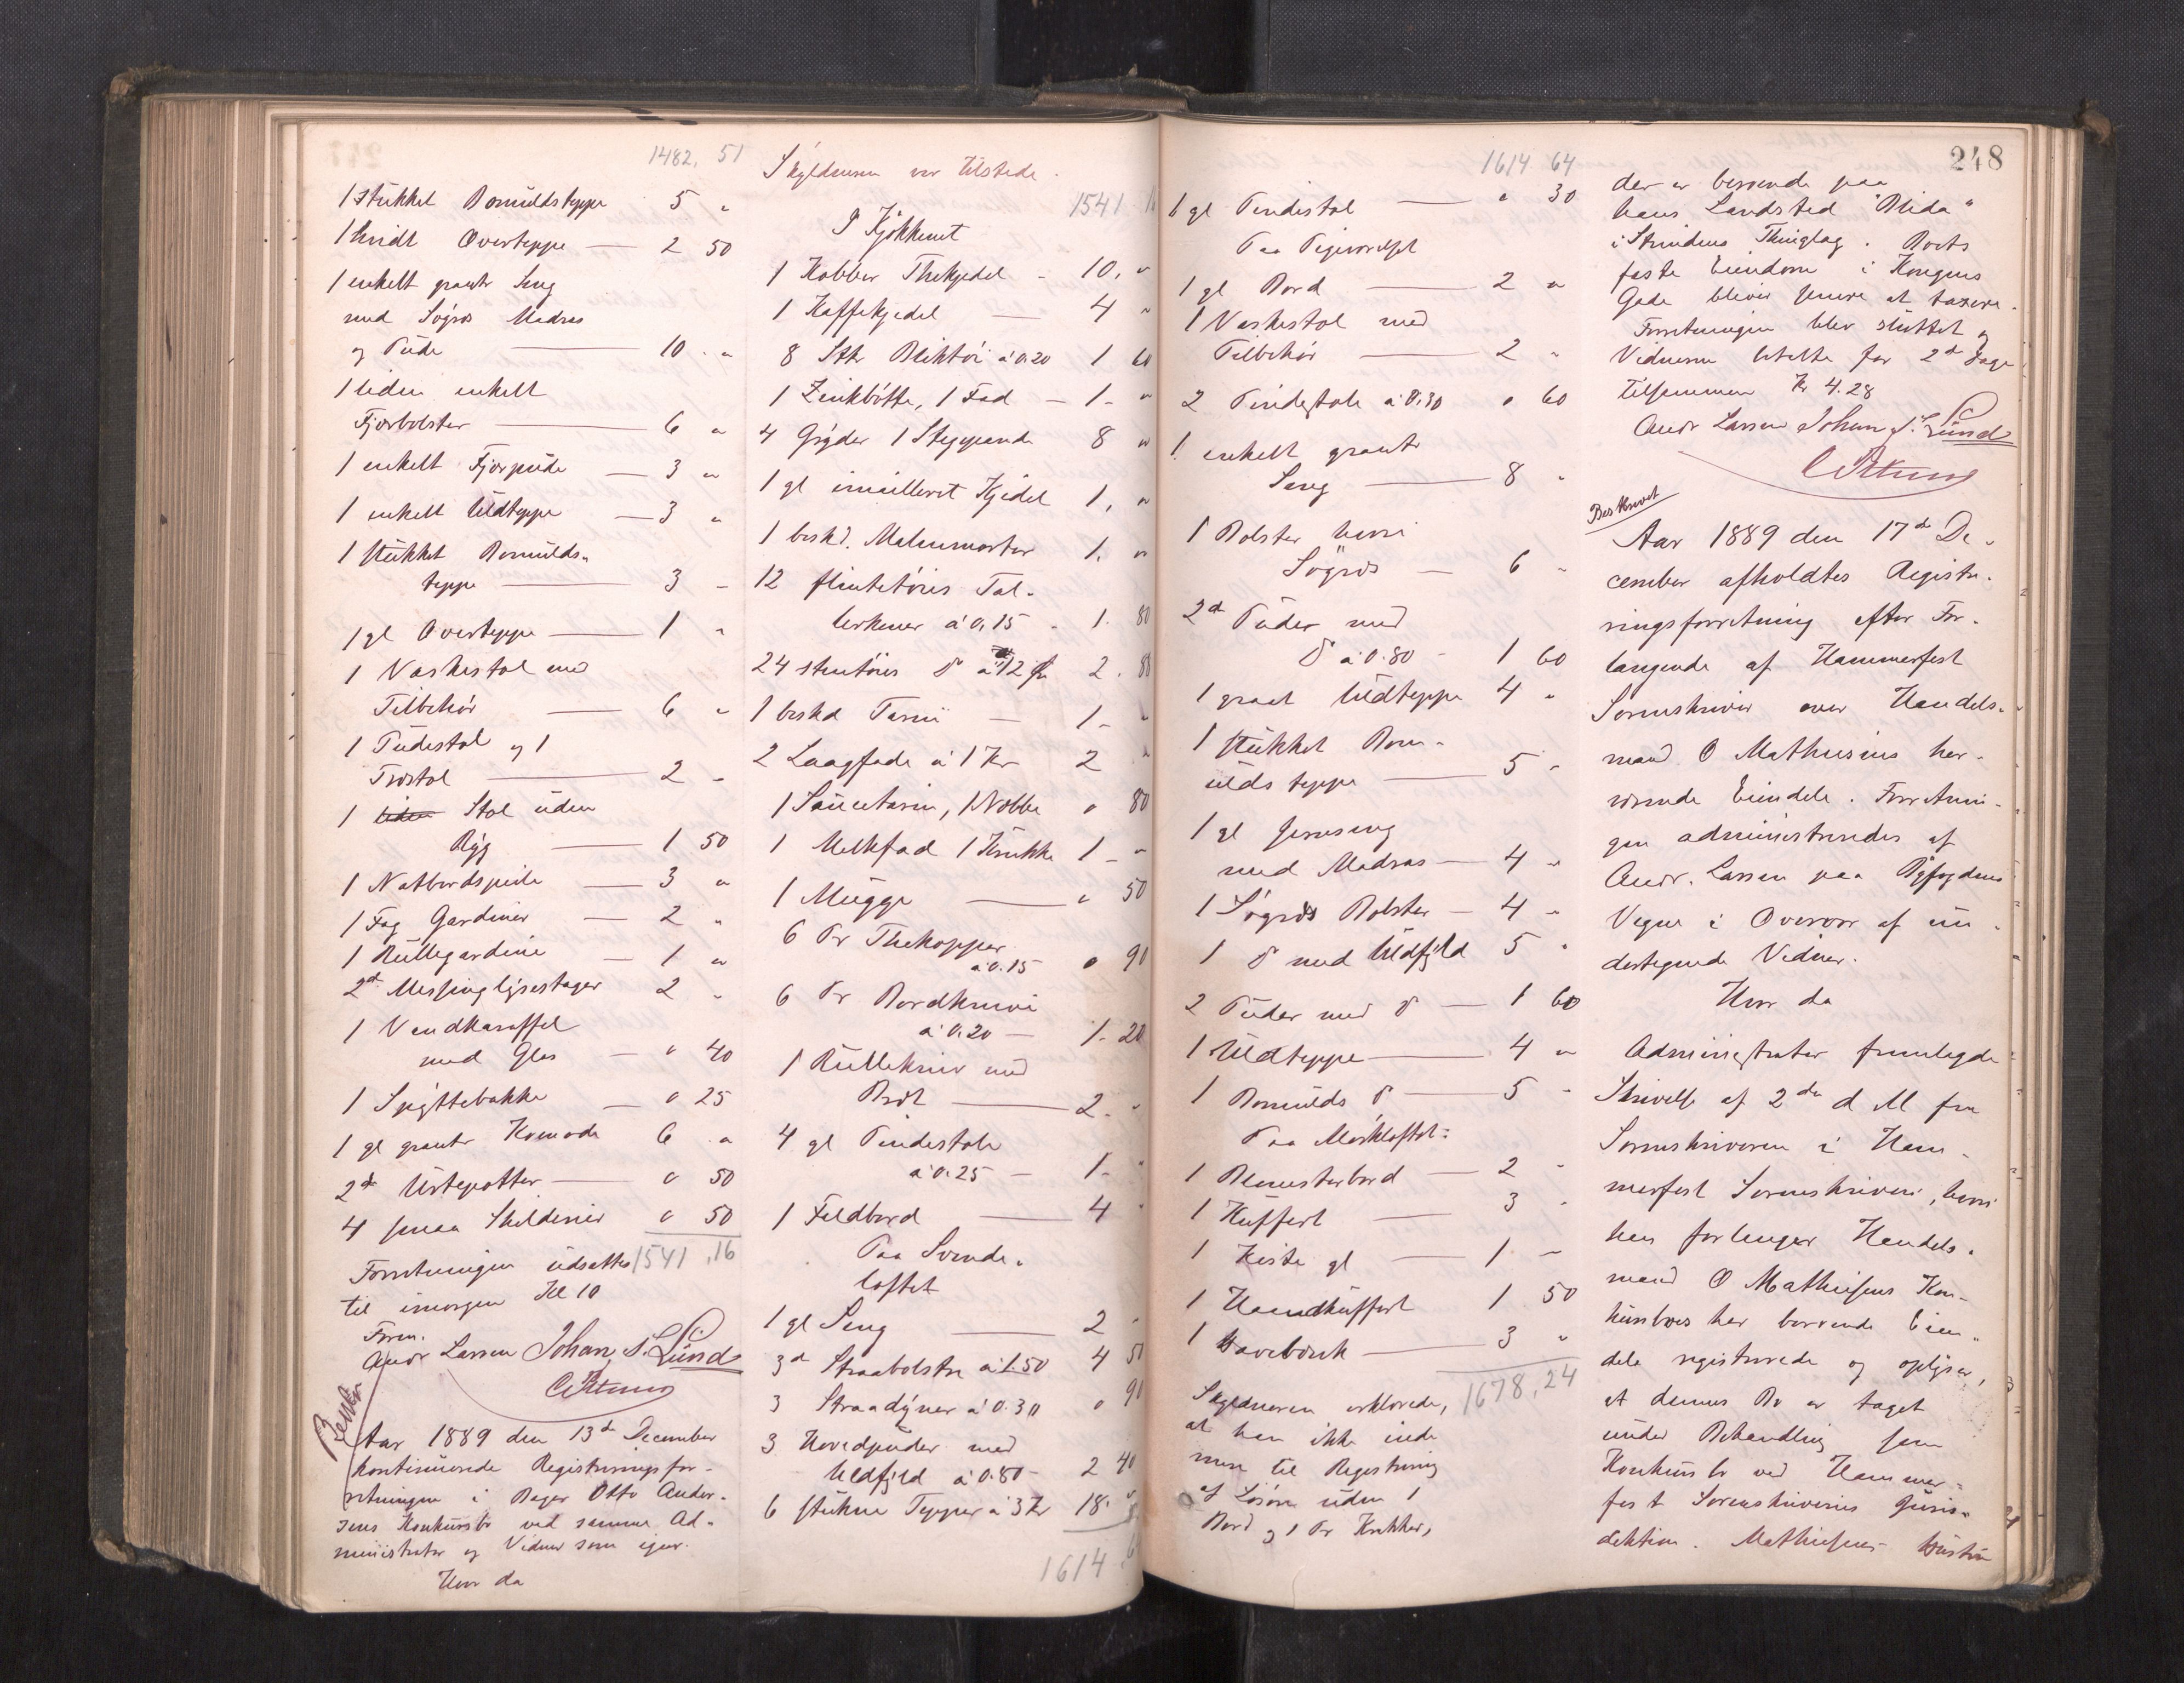 1482. 51
1 stukket Bomuldsteppe 5 "
1 hvidt Overteppe — 2 50
1 enkelt grantr Seng
med Søgræs Madras
og Pude — 10 "
1 liden enkelt
Fjærbolster — 6 "
1 enkelt Fjærpude — 3 "
1 enkelt Uldteppe — 3 "
1 stukket Bomulds-
teppe — 3 "
1 gl Overteppe — 1 "
1 Vaskestol med
Tilbehør — 6 "
1 Pindestol og 1
Træstol — 2 "
1 liden Stol uden
Ryg — 1 50
1 Natbordspude — 3 "
1 Fag Gardiner — 2 "
1 Rullegardine — 1 "
2de Messinglysestager 2 "
1 Vandkaraffel
med Glas — " 40
1 Spyttebakke — " 25
1 gl grantr Komode 6 "
2de Urtepotter — " 50
4 smaa Skilderier " 50
1541,16
Forretningen udsattes
til imorgen Kl 10
Forev.
Andr Larsen Johan S. Lund
Aar 1889 den 13de December
kontinuerede Registreringsfor-
retningen i Bager Otto Ander-
sens Konkursbo ved samme Ad-
ministrator og Vidner som igaar.
Hvor da
Skyldneren var tilstede.
1541
I Kjøkkenet
1 Kobber Thekjedel - 10, "
1 Kaffekjedel — 4 "
8 Stk Bliktøi à 0.20 1 60
1 Zinkbøtte, 1 Fad — 1 - "
4 Gryder 1 Stegepande 8 "
1 gl emailleret Kjedel 1, "
1 beskd. Malmmorter 1. "
12 flintetøies Tal-
lerkener à 0,15 - 1. 80
24 stentøies do à 12 2. 88
1 beskd Tarin — 1 - "
2 Laagfade à 1 Kr 2 "
1 Saucetarin, 1 Nobbe " 80
1 Melkfad 1 Krukke 1 - "
1 Mugge — " 50
6 Pr Thekopper
à 0.15 " 90
6 Pr Bordknive
à 0.20 — 1. 20
1 Rullekniv med
Bræt — 2. "
4 gl Pindestole
à 0.25 — 1 - "
1 Feldbord — 4 "
Paa Svende-
loftet
1 gl Seng — 2 "
3de Straabolstre à 1.50 4 50
3 Straadyner à 0.30 " 90
3 Hovedpuder med
Uldfjeld à 0.80 - 2 40
6 stukne Tepper à 3 Kr 18. "
1614
1614 64
1 gl Pindestol — " 30
Paa Pigeværelset
1 gl Bord — 2 "
1 Vaskestol med
Tilbehør — 2 "
2 Pindestole à 0.30 " 60
1 enkelt grantr
Seng — 8 "
1 Bolster hvori
Søgræs — 6 "
2de Puder med
do à 0.80 - 1 60
1 graat Uldteppe 4 "
1 stukket Bom-
ulds teppe — 5 "
1 gl Jernseng
med Madras — 4 "
1 Søgræs Bolster — 4 "
1 do med Uldfjeld 5 "
2 Puder med do — 1 60
1 Uldteppe — 4 "
1 Bomulds do — 5 "
Paa Mørkloftet:
1 Blomsterbord — 2 "
1 Kuffert — 3 "
1 Kiste gl — 1 -
1 Haandkuffert 1 50
1 Havebænk — 3 "
1678,24
Skyldneren erklærede,
at han ikke inde
mere til Registrering
af Løsøre uden 1
Bord og 1 Pr Krakker,
248
der er beroende paa
hans Landsted "Blida"
i Strindens Thinglag. Boets
faste Eiendom i Kongens
Gade bliver senere at taxere.
Forretningen blev sluttet og
Vidnerne betalte for 2de Dage
tilsammen Kr 4.28
Andr Larsen Johan S. Lund
Beskrevet
Aar 1889 den 17de De-
cember afholdtes Registre-
ringsforretning efter For-
langende af Hammerfest
Sorenskriver over Handels-
mand O Mathiesens her-
værende Eiendele. Forretnin-
gen administreredes af
Andr. Larsen paa Byfogdens
Vegne i Overvær af un-
dertegnede Vidner.
Hvor da
Administrator fremlagde
Skrivelse af 2den d M fra
Sorenskriveren i Ham-
merfest Sorenskriveri, hvori
han forlanger Handels-
mand O Mathiesens Kon-
kursboes her beroende Eien-
dele registrerede og oplyser,
at dennes Bo er taget
under Behandling som
Konkursbo ved Hammer-
fest Sorenskriveries Juris-
diktion. Mathiesens Hustru